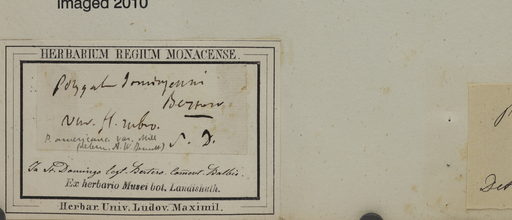 Imaged 2010
HERBARIUM REGIUM MONACENSE.
Polygala domingensis
Bertero.
var. fl. rubro.
P. americana var. Mill
(determ. A. W. Bennett) S. D.
In St. Domingo legt. Bertero, comunt. Balbis.
Ex herbario Musei bot. Landishuth.
Herbar. Univ. Ludov. Maximil.
Det